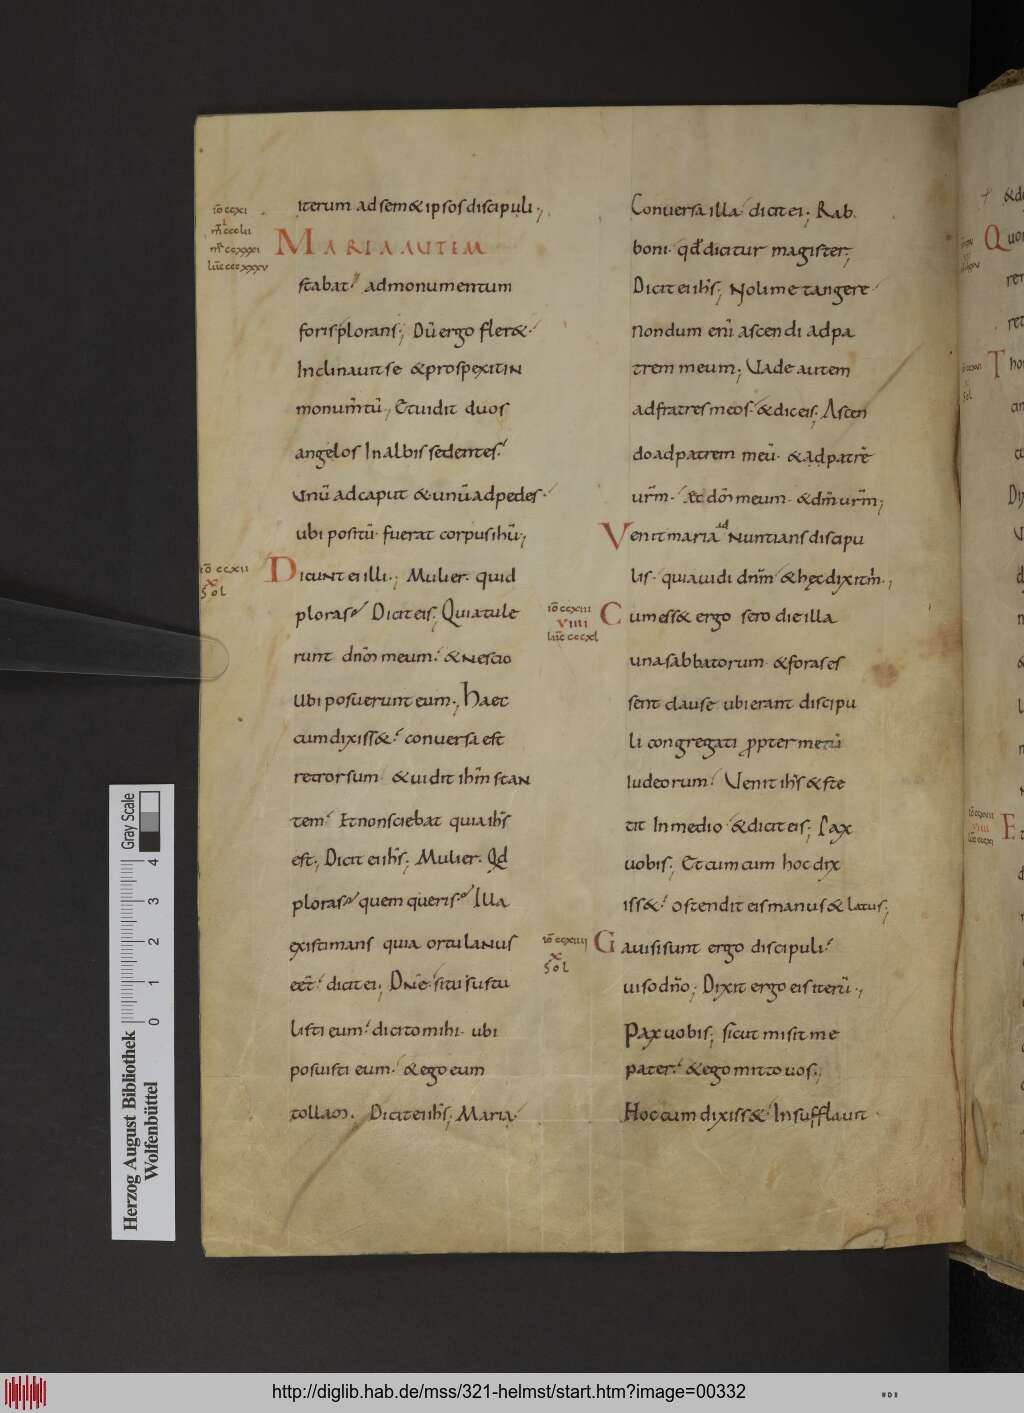 iterum ad sem& ipsos discipuli;
MARIA AUTEM
stabat ad monumentum
foris plorans; Dū ergo fler&
Inclinauit se & prospexit IN
monum̄tū; Et uidit duos
angelos In albis sedentes
unū ad caput & unū ad pedes
ubi positū fuerat corpus ih̄u;
Dicunt ei illi; Mulier quid
ploras Dicit eis; Quia tule
runt dn̄m meum & Nescio
Ubi posuerunt eum; Haec
cum dixiss& conuersa est
retrorsum & uidit ih̄m stan
tem Et non sciebat quia ih̄s
est; Dicit ei ih̄s; Mulier Qd
ploras quem queris Illa
existimans quia ortulanus
eēt dicit ei; Dn̄e si tu sustu
listi eum dicito mihi ubi
posuisti eum & ego eum
tollam; Dicit ei ih̄s; Maria
iō ccxi
m̄ ccclii
mr̄ ccxxxi
lūc cccxxxv
iō ccxii
x
Sol
Conuersa illa dicit ei; Rab
boni qd̄ dicitur magister;
Dicit ei ih̄s; Noli me tangere
nondum enī ascendi ad pa
trem meum; Uade autem
ad fratres meos & dic eis; Ascen
do ad patrem meū & ad patrē
ur̄m Et dm̄ meum & dm̄ ur̄m;
Venit maria ad Nuntians discipu
lis quia uidi dn̄m & hęc dixit m̄;
Cum ess& ergo sero die illa
una sabbatorum & fores es
sent clause ubi erant discipu
li congregati propter metū
Iudeorum Uenit ih̄s & ste
tit In medio & dicit eis; Pax
uobis; Et cum cum hoc dix
iss& ostendit eis manus & latus;
Gauisi sunt ergo discipuli
uiso dn̄o; Dixit ergo eis iterū;
Pax uobis; sicut misit me
pater & ego mitto uos;
Hoc cum dixiss& Insufflauit
iō ccxiii
viiii
lūc cccxl
iō ccxiiii
x
Sol
& de
Quo
Tho
Herzog August Bibliothek
Wolfenbüttel
0 1 2 3 4
Gray Scale
http://diglib.hab.de/mss/321-helmst/start.htm?image=00332